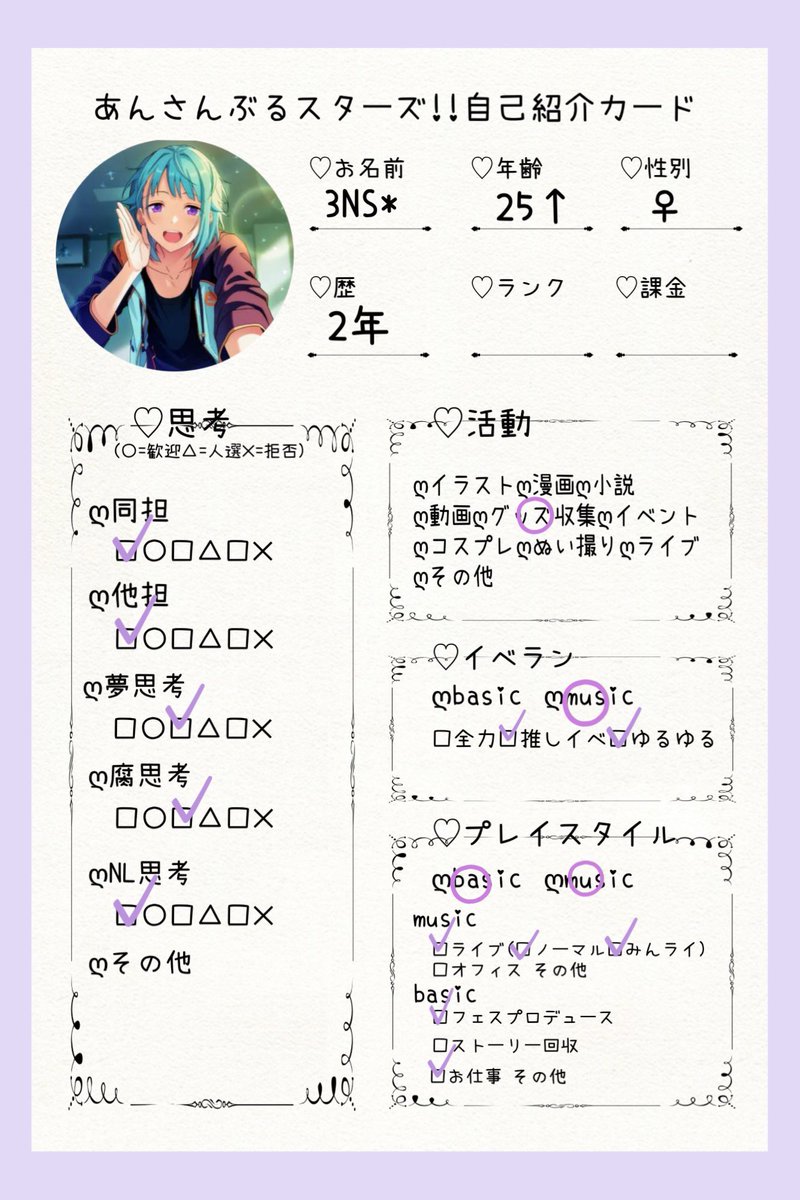 あんさんぶるスターズ!!自己紹介カード
♡お名前 ♡年齢 ♡性別
3NS* 25↑ ♀
♡歴 ♡ランク ♡課金
2年
♡思考
(○=歓迎△=人選×=拒否)
ღ同担
□○□△□×
ღ他担
□○□△□×
ღ夢思考
□○□△□×
ღ腐思考
□○□△□×
ღNL思考
□○□△□×
ღその他
♡活動
ღイラストღ漫画ღ小説
ღ動画ღグッズ収集ღイベント
ღコスプレღぬい撮りღライブ
ღその他
♡イベラン
ღbasic ღmusic
□全力□推しイベ□ゆるゆる
♡プレイスタイル
ღbasic ღmusic
music
□ライブ(□ノーマル□みんライ)
□オフィス その他
basic
□フェスプロデュース
□ストーリー回収
□お仕事 その他